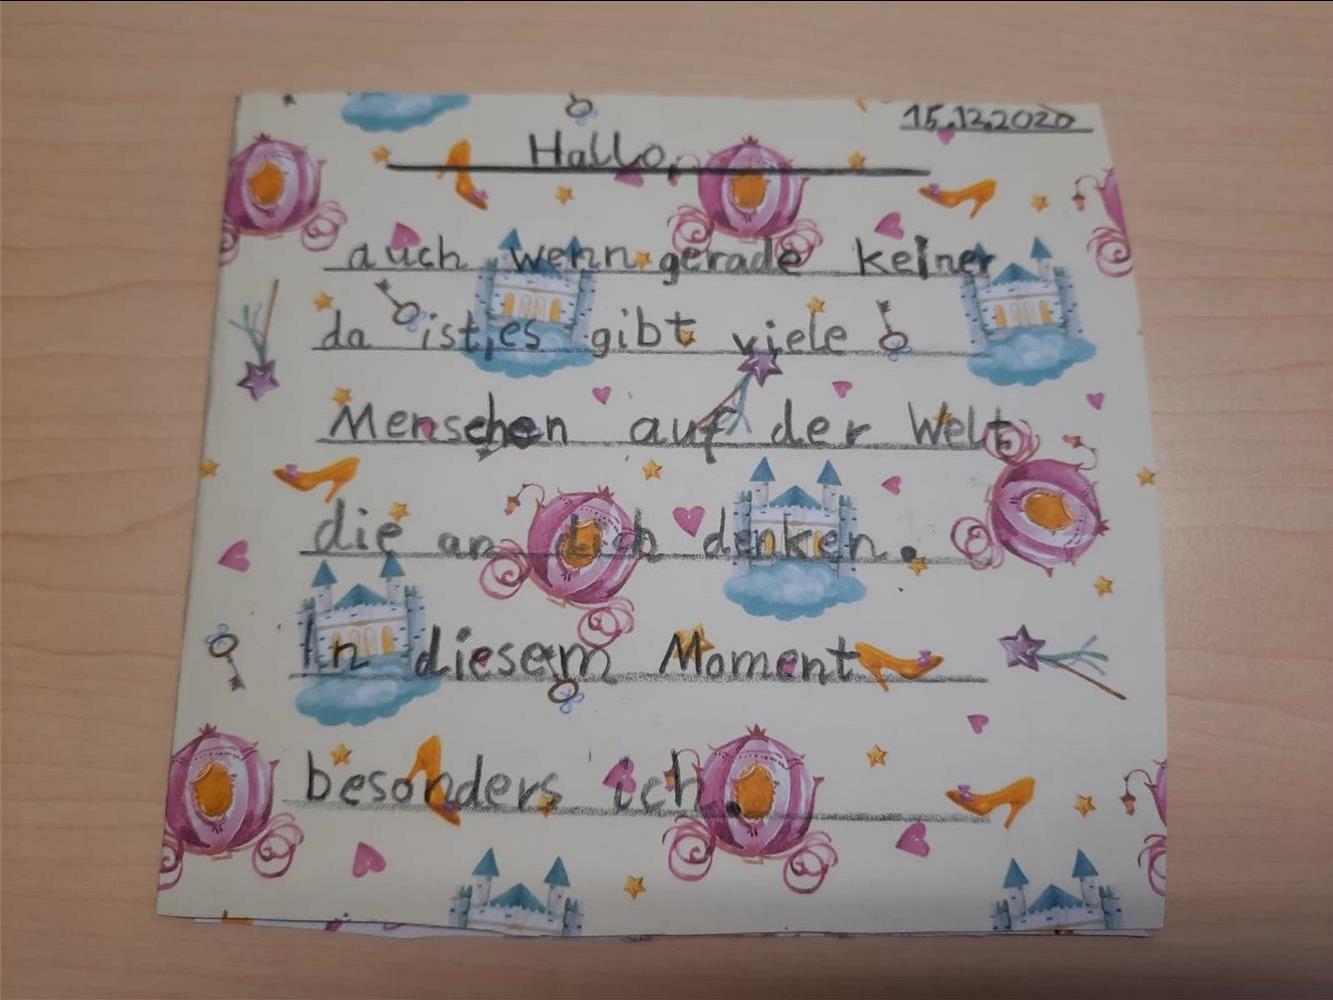 15.12.2020
Hallo,
auch wenn gerade keiner
da ist, es gibt viele
Menschen auf der Welt
die an dich denken.
In diesem Moment
besonders ich.